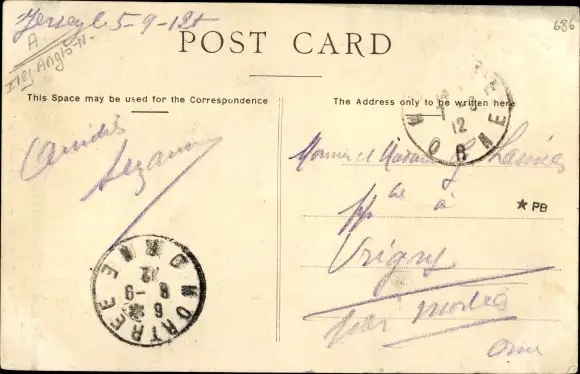 Jersey le 5-9-12
A
Iles Anglo-N-
686
POST CARD
This Space may be used for the Correspondence
The Address only to be written here
Amitiés
Suzanne
Monsieur et Madame
à
★ PB
Vrigny
par Mortrée
Orne
MORTRÉE
ORNE
6
8 -9
12
12
8
ORNE